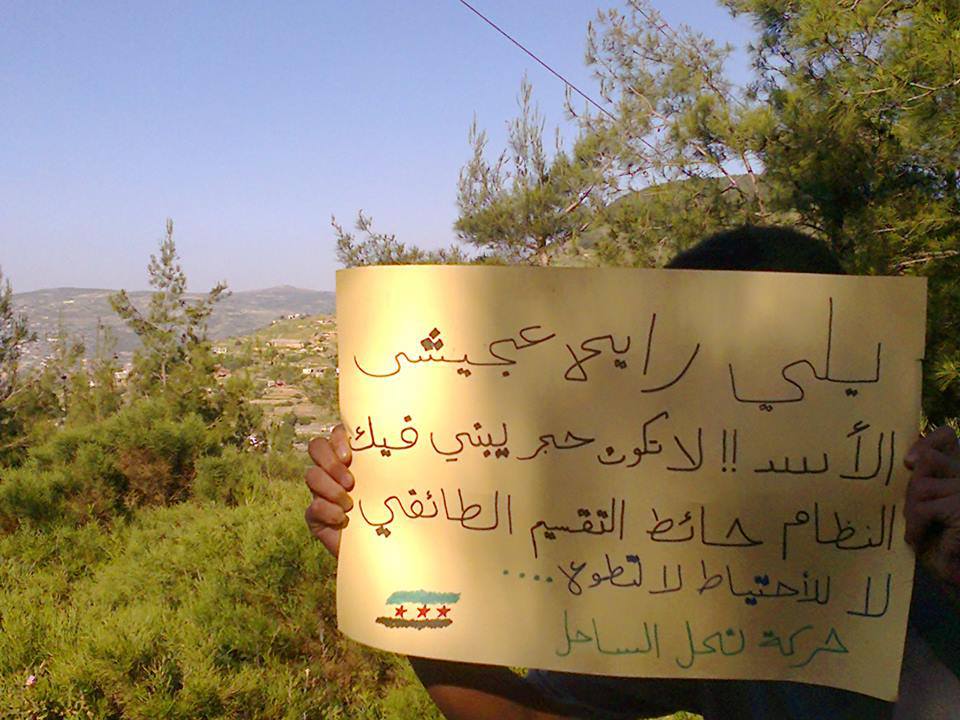 يلي رايح عجيش
الأسد !! لا تكون حجر يبني فيك
النظام حائط التقسيم الطائفي
لا للأحتياط لا لتطوع....
حركة نحل الساحل